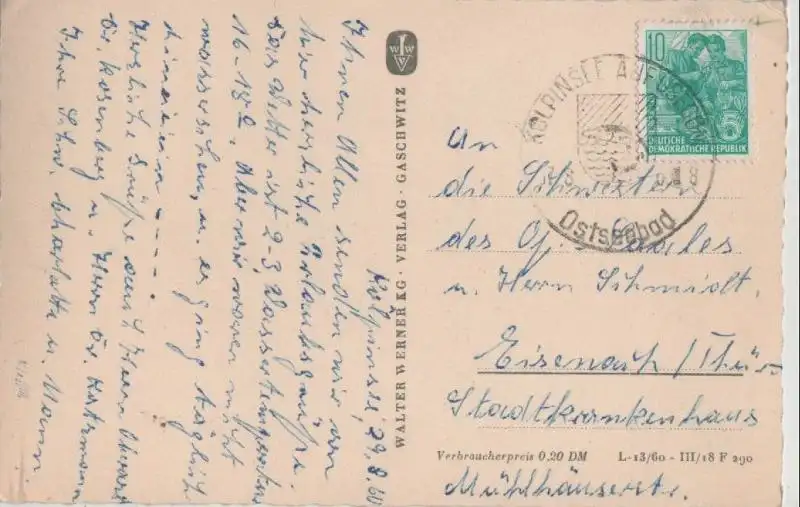 Kölpinsee, 29.8.60
Ihnen Allen senden wir von
hier herzliche Urlaubsgrüße.
Das Wetter ist 2-3, Wassertemperatur
16-18°. Aber wir waren nicht
wasserscheu, u. es ging täglich
hinein - - - - .
Herzliche Grüße auch Herrn Oberarzt
Dr. Rosenberg u. Herrn Dr.
Ihre Schw. Charlotte u. Mann.
WALTER WERNER KG · VERLAG · GASCHWITZ
WWV
10
DEUTSCHE
DEMOKRATISCHE REPUBLIK
KÖLPINSEE AUF USEDOM
Ostseebad
An
die Schwestern
des Op. Saales
u. Herrn Schmidt.
Eisenach/Thür.
Stadtkrankenhaus
Verbraucherpreis 0,20 DM L-13/60 - III/18 F 290
Mühlhäuserstr.